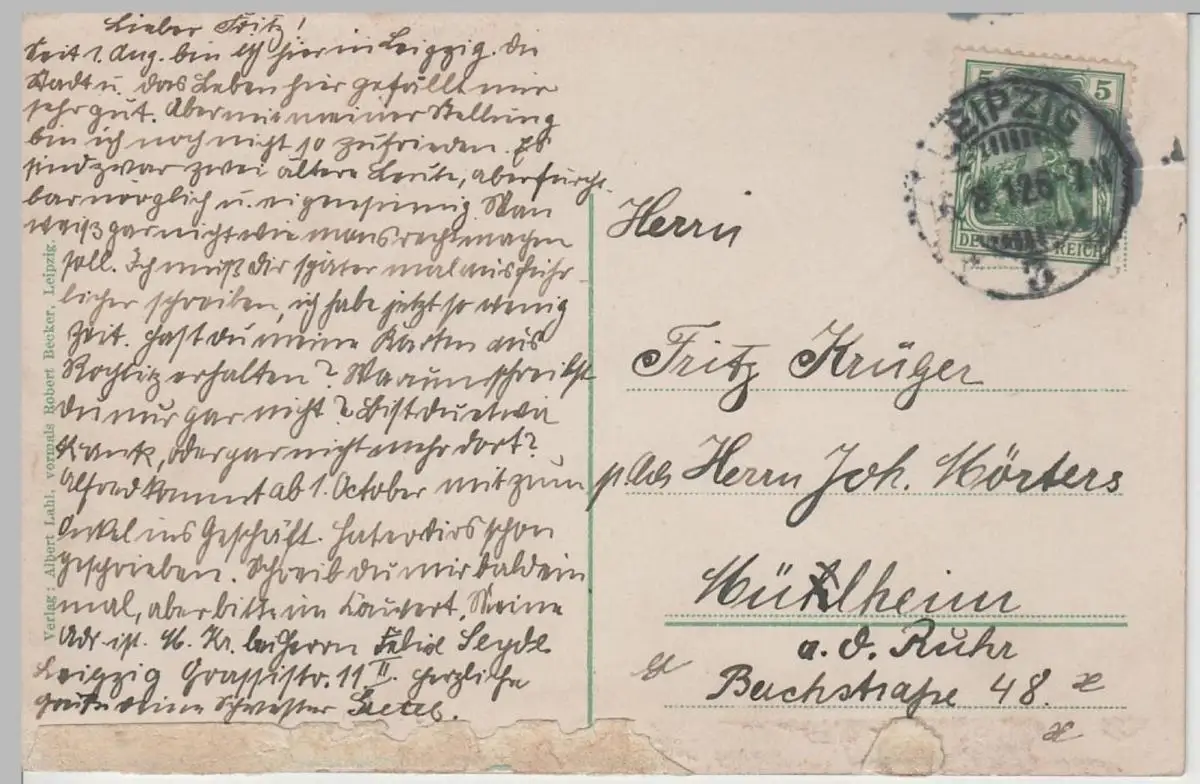 Lieber Fritz!
Seit 1. Aug. bin ich hier in Leipzig. Die
Stadt u. das Leben hier gefällt mir
sehr gut. Aber mit meiner Stellung
bin ich noch nicht so zufrieden. Es
sind zwar zwei ältere Leute, aber furcht-
bar nörglich u. eigensinnig. Man
weiß gar nicht wie mans recht machen
soll. Ich muß dir später mal ausführ
licher schreiben, ich habe jetzt so wenig
Zeit. Hast du meine Karten aus
Rochlitz erhalten? Warum schreibst
du nur gar nicht? Bist du etwa
krank, oder gar nicht mehr dort?
Alfred kommt ab 1. October mit zum
Onkel ins Geschäft. Hat er dirs schon
geschrieben. Schreib du mir bald ein
mal, aber bitte im Kouvert. Meine
Adr. ist. M. Kr. bei Herrn Felix Seydl
Leipzig Grassistr. 11 II. Herzliche
Grüße deine Schwester
Verlag: Albert Lahl, vormals Robert Becker, Leipzig.
5 5
DEUTSCHES REICH
LEIPZIG
8.12.6-7N
Herrn
Fritz Krüger
p. Ads Herrn Joh. Mörters
Mühlheim
a. d. Ruhr
Bachstraße 48.